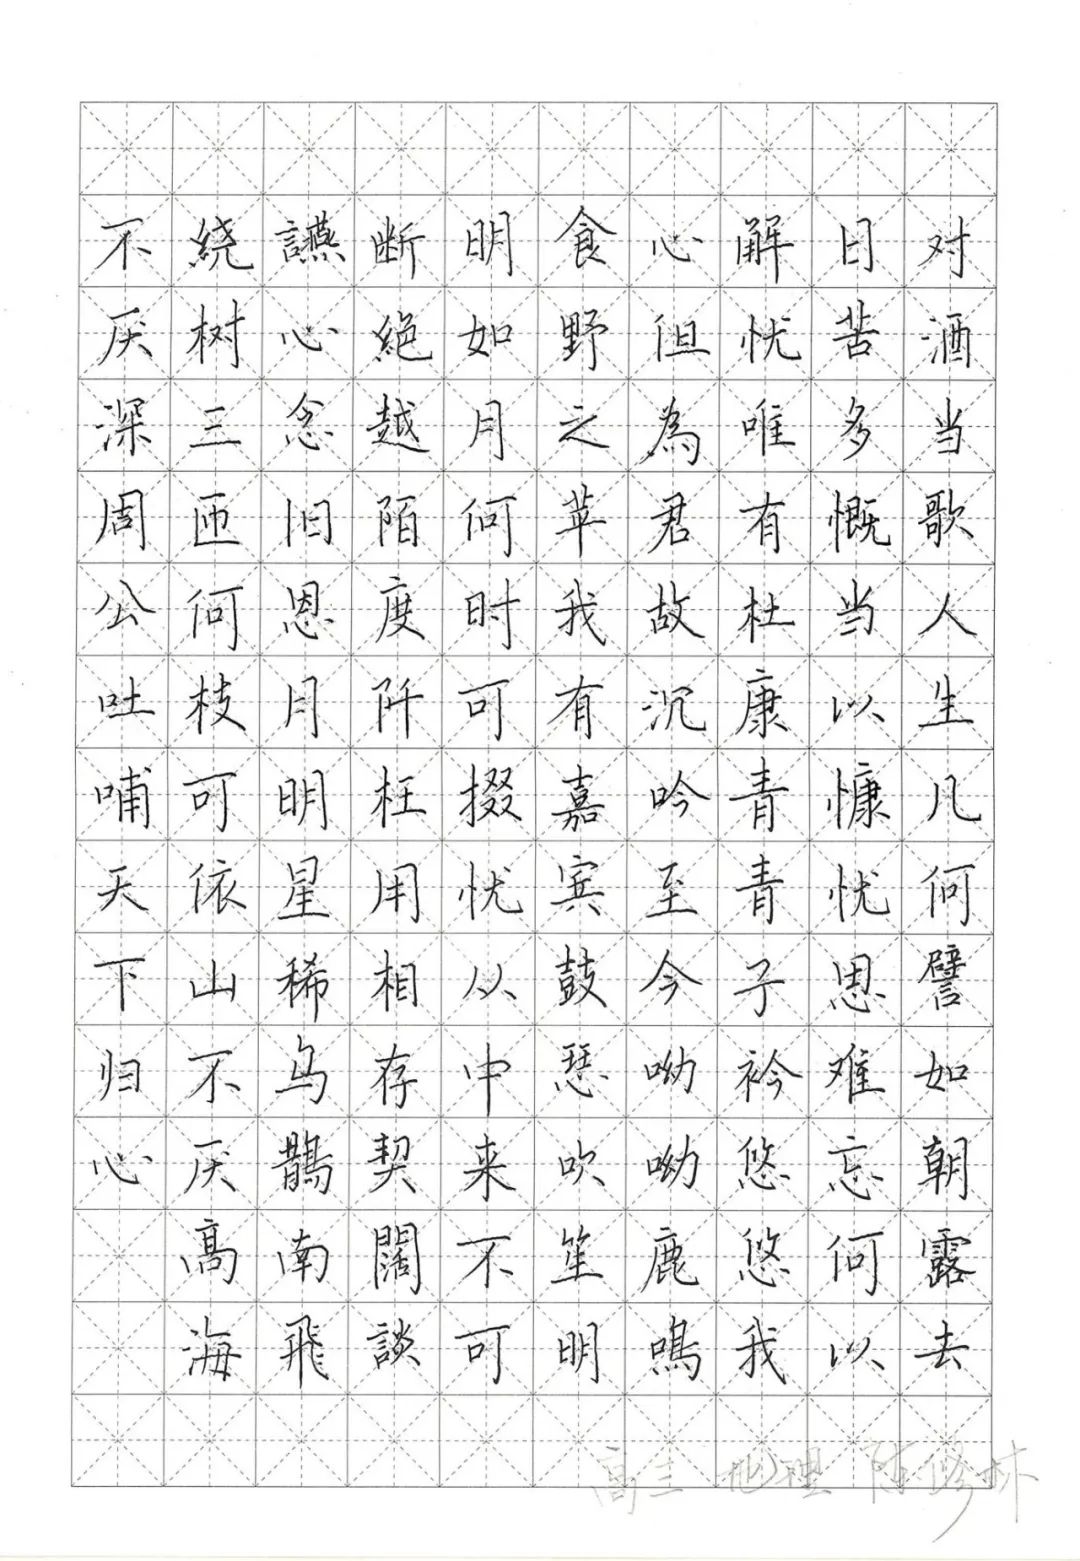 对酒当歌人生凡何譬如朝露去
日苦多慨当以慷忧思难忘何以
解忧唯有杜康青青子衿悠悠我
心但為君故沉吟至今呦呦鹿鳴
食野之苹我有嘉宾鼓瑟吹笙明
明如月何时可掇忧从中来不可
断絕越陌度阡枉用相存契闊談
讌心念旧恩月明星稀乌鵲南飛
绕树三匝何枝可依山不厌高海
不厌深周公吐哺天下归心
高三 地理 陈修林